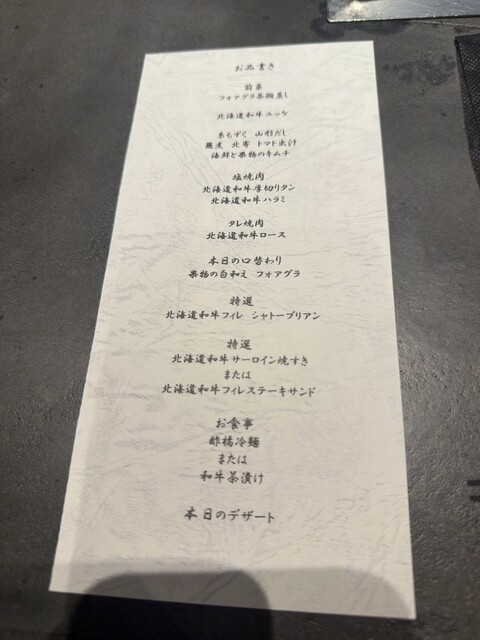 お品書き
前菜
フォアグラ茶碗蒸し
北海道和牛ユッケ
糸もずく 山形だし
鮑煮 北寄 トマト出汁
海鮮と果物のキムチ
塩焼肉
北海道和牛厚切りタン
北海道和牛ハラミ
タレ焼肉
北海道和牛ロース
本日の口替わり
果物の白和え フォアグラ
特選
北海道和牛フィレ シャトーブリアン
特選
北海道和牛サーロイン焼すき
または
北海道和牛フィレステーキサンド
お食事
酢橘冷麺
または
和牛茶漬け
本日のデザート